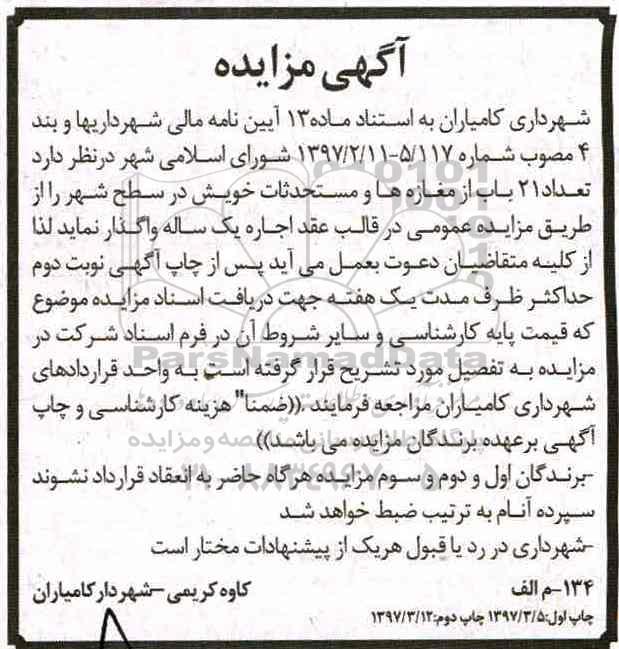 آگهی مزایده
شهرداری کامیاران به استناد ماده۱۳ آیین نامه مالی شهرداریها و بند
۴ مصوب شماره ۵/۱۱۷-۱۳۹۷/۲/۱۱ شورای اسلامی شهر درنظر دارد
تعداد۲۱ باب از مغازه ها و مستحدثات خویش در سطح شهر را از
طریق مزایده عمومی در قالب عقد اجاره یک ساله واگذار نماید لذا
از کلیه متقاضیان دعوت بعمل می آید پس از چاپ آگهی نوبت دوم
حداکثر ظرف مدت یک هفته جهت دریافت اسناد مزایده موضوع
که قیمت پایه کارشناسی و سایر شروط آن در فرم اسناد شرکت در
مزایده به تفصیل مورد تشریح قرار گرفته است به واحد قراردادهای
شهرداری کامیاران مراجعه فرمایند .((ضمنا" هزینه کارشناسی و چاپ
آگهی برعهده برندگان مزایده می باشد))
-برندگان اول و دوم و سوم مزایده هرگاه حاضر به انعقاد قرارداد نشوند
سپرده آنام به ترتیب ضبط خواهد شد
-شهرداری در رد یا قبول هریک از پیشنهادات مختار است
۱۳۴-م الف کاوه کریمی -شهردار کامیاران
چاپ اول:۱۳۹۷/۳/۵ چاپ دوم:۱۳۹۷/۳/۱۲
ParsNamadData